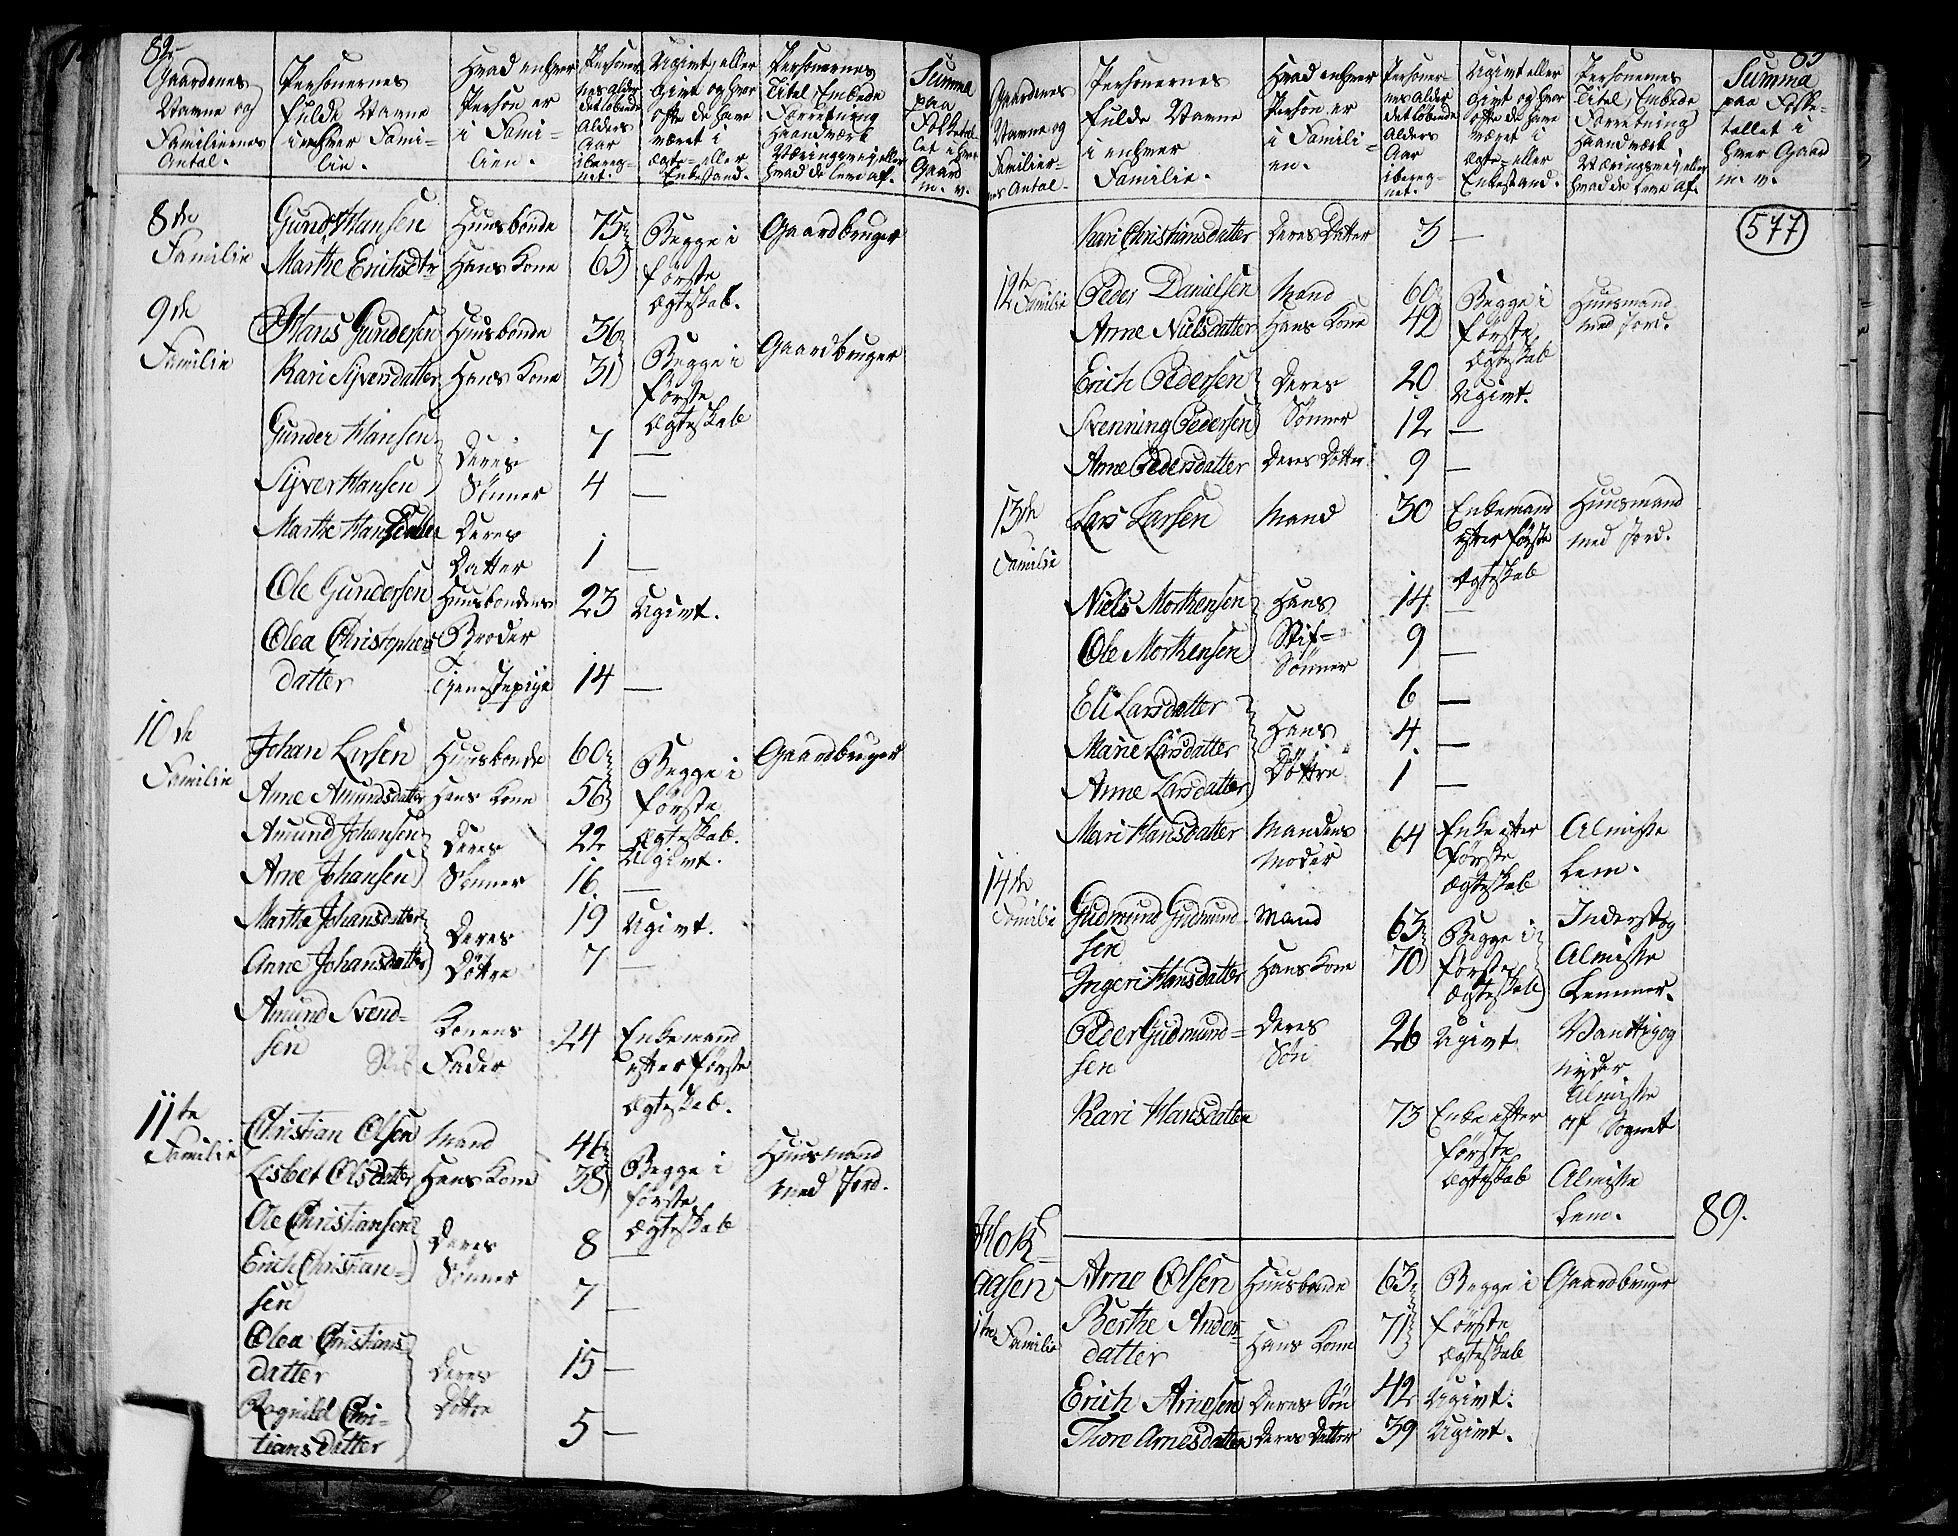 82
Gaardenes Navne og Familiernes Antal.
Personernes fulde Navne i enhver Familie.
Hvad enhver Person er i Familien.
Personernes Alder det løbende Alders Aar iberegnet.
Ugivt, eller Givt og hvor ofte de have været i Ægte- eller Enkestand.
Personernes Titel, Embede Forretning Haandverk Næringsvej eller hvad de leve af.
Summa paa Folketallet i hver Gaard m. v.
8de Familie
Gund Hansen Huusbonde 75 Begge i Gaardbruger
Marthe Erichsdtr Hans Kone 65 første Ægteskab.
9de Familie
Hans Gundersen Huusbonde 36 Begge i Gaardbruger
Kari Syversdatter Hans Kone 31 første Ægteskab
Gunder Hansen Deres 7 —
Syver Hansen Sønner 4 —
Marthe Hansdatter Deres Datter 1 —
Ole Gundersen Huusbondens Broder 23 Ugivt.
Olea Christophers
datter Tjenestepige 14 —
10de Familie
Johan Larsen Huusbonde 60 Begge i Gaardbruger
Anne Amundsdatter Hans Kone 56 første Ægteskab.
Amund Johansen Deres 22 Ugivt.
Arne Johansen Sønner 16 —
Marthe Johansdatter Deres 19 Ugivt.
Anne Johansdatter Døttre 7 —
Amund Svend-
sen Konens Fader 24 Enkemand efter første Ægteskab.
11te Familie
Christian Olsen Mand 41 Begge i Huusmand
Lisbet Olsdatter Hans Kone 38 første Ægteskab med Jord.
Ole Christiansen Deres 8 —
Erich Christian-
sen Sønner 7 —
Olea Christians
datter Deres 15 —
Ragnild Chri-
tiansdatter Døttre 5 —
83
Gaardenes Navne og Familiernes Antal.
Personernes fulde Navne i enhver Familie.
Hvad enhver Person er i Familien.
Personernes Alder det løbende Alders Aar iberegnet.
Ugivt eller Givt og hvor ofte de have været i Ægte- eller Enkestand.
Personernes Titel, Embede Forretning Haandverk Næringsvej eller hvad de leve af.
Summa paa Folketallet i hver Gaard m. v.
577
Kari Christiansdatter Deres Datter 3 —
12te Familie
Peder Danielsen Mand 60 Begge i Huusmand
Anne Nielsdatter Hans Kone 42 første Ægteskab med Jord.
Erich Pedersen Deres 20 Ugivt.
Svenning Pedersen Sønner 12 —
Anne Pedersdatter Deres Datter 9 —
13de Familie
Lars Larsen Mand 30 Enkemand efter første Ægteskab Huusmand med Jord.
Niels Morthensen Hans 14 —
Ole Morthensen Stif-Sønner 9 —
Eli Larsdatter 6 —
Marie Larsdatter Hans 4 —
Anne Larsdatter Døttre 1 —
Mari Hansdatter Mandens Moder 64 Enke efter første Ægteskab Almisse Lem.
14de Familie
Gudmund Gudmund-
sen Mand 63 Begge i Inderst og
Ingeri Hansdatter Hans Kone 70 første Ægteskab Almisse Lemmer.
Peder Gudmund-
sen Deres Søn 26 Ugivt Vanttig og nyder Almisse af Sognet
Kari Hansdatter 73 Enke efter første Ægteskab Almisse Lem.
89.
Hok-
aasen
1te Familie
Arne Olsen Huusbonde 63 Begge i Gaardbruger
Berthe Ander-
datter Hans Kone 71 første Ægteskab
Erich Arnesen Deres Søn 42 Ugivt.
Thore Arnesdatter Deres Datter 39 Ugivt.